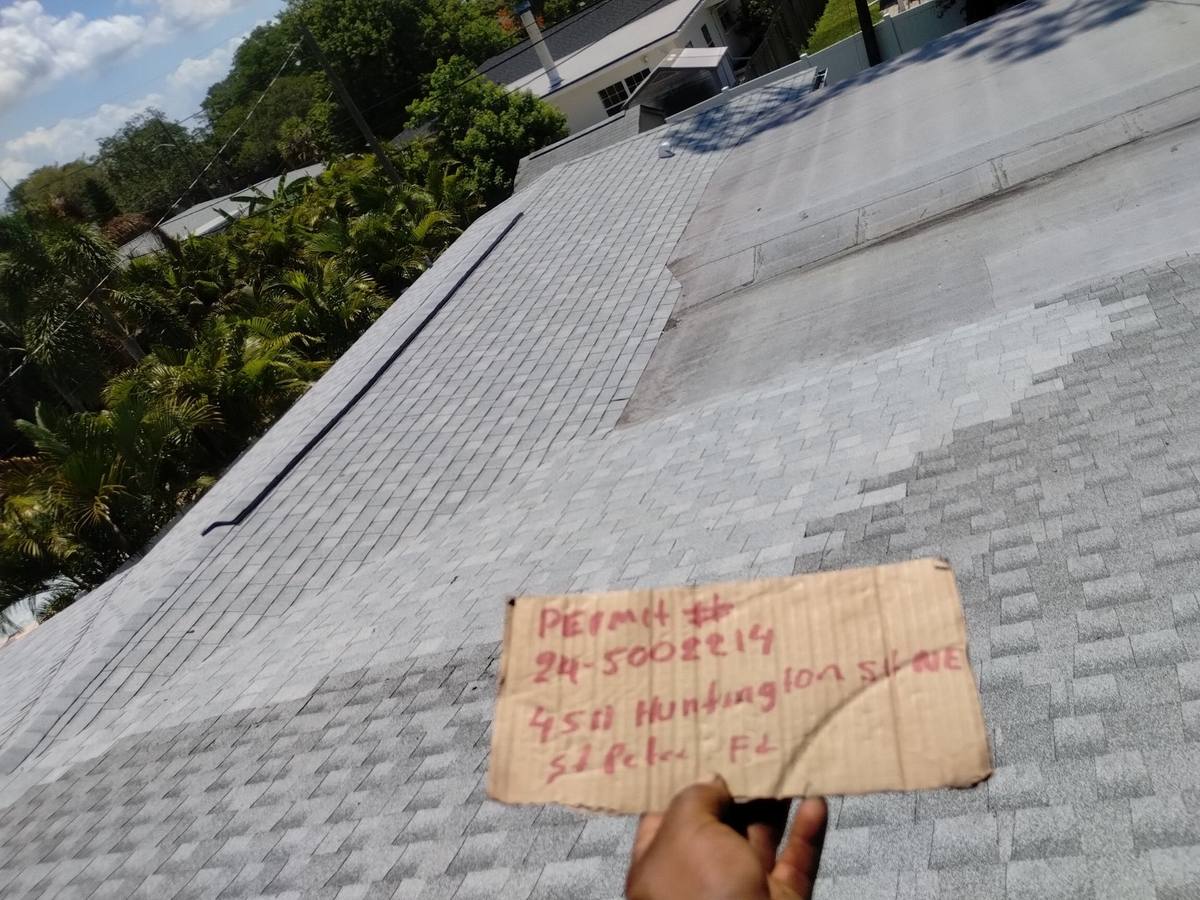 PErmit #
24-5002214
4511 Huntington St NE
St Pete. FL